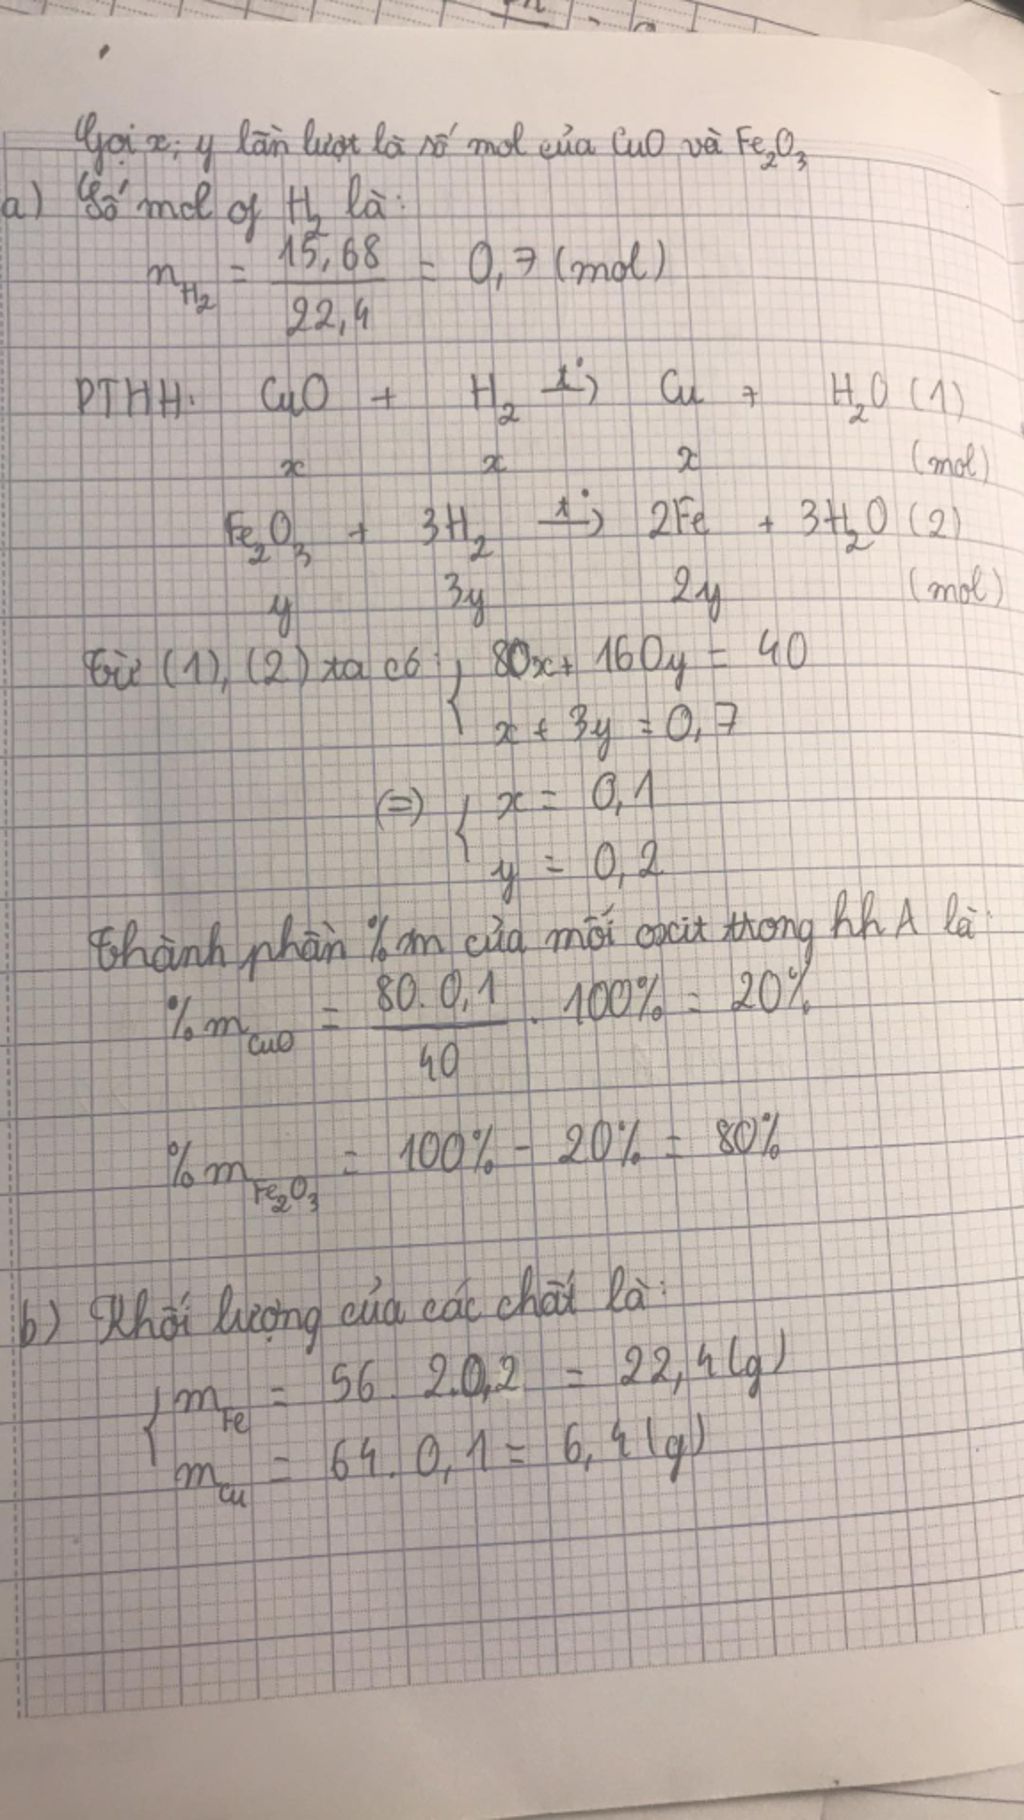 Gọi x; y lần lượt là số mol của CuO và Fe₂O₃
a) Số mol of H₂ là:
n_H₂ = 15,68 / 22,4 = 0,7 (mol)
PTHH: CuO + H₂ –t°→ Cu + H₂O (1)
x x x (mol)
Fe₂O₃ + 3H₂ –t°→ 2Fe + 3H₂O (2)
y 3y 2y (mol)
Từ (1), (2) ta có: { 80x + 160y = 40
x + 3y = 0,7
(=) { x = 0,1
y = 0,2
Thành phần %m của mỗi oxit trong hh A là:
%m_CuO = 80.0,1 / 40 . 100% = 20%
%m_Fe₂O₃ = 100% - 20% = 80%
b) Khối lượng của các chất là:
{ m_Fe = 56. 2.0,2 = 22,4 (g)
m_Cu = 64. 0,1 = 6,4 (g)